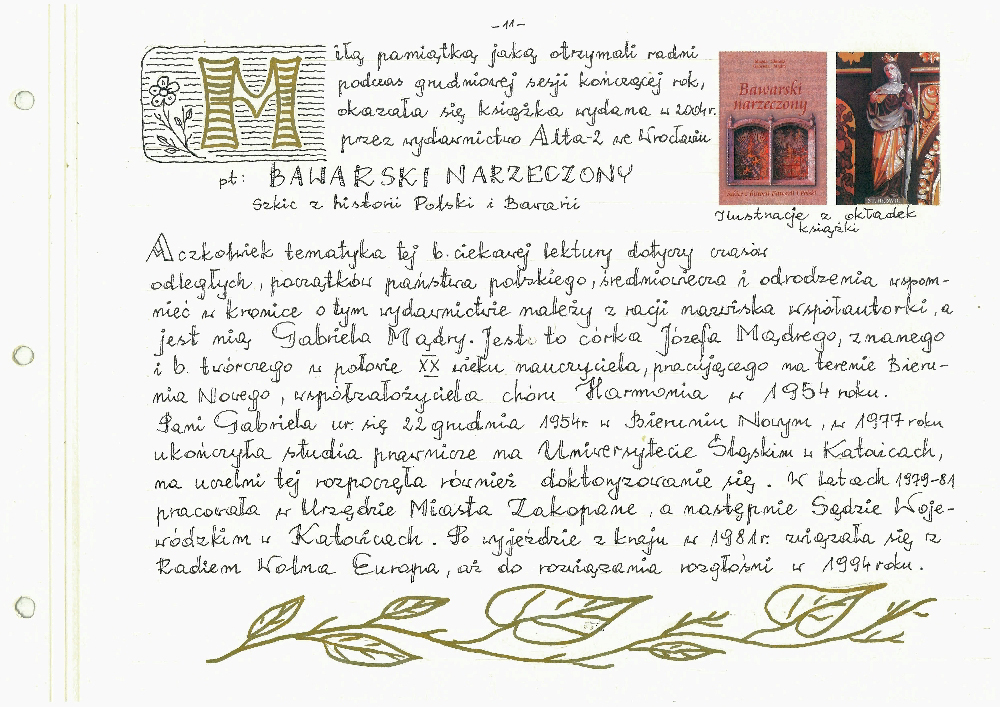 - 11 -
Miłą pamiątką jaką otrzymali radni
podczas grudniowej sesji kończącej rok,
okazała się książka wydana w 2004r.
przez wydawnictwo Alta-2 we Wrocławiu
pt: BAWARSKI NARZECZONY
Szkic z historii Polski i Bawarii
Bawarski
narzeczony
Ilustracje z okładek
książki
Aczkolwiek tematyka tej b. ciekawej lektury dotyczy czasów
odległych, początków państwa polskiego, średniowiecza i odrodzenia wspom-
nieć w kronice o tym wydawnictwie należy z racji nazwiska współautorki, a
jest nią Gabriela Mądry. Jest to córka Józefa Mądrego, znanego
i b. twórczego w połowie XX wieku nauczyciela, pracującego na terenie Bieru-
nia Nowego, współzałożyciela chóru Harmonia w 1954 roku.
Pani Gabriela ur. się 22 grudnia 1954r. w Bieruniu Nowym, w 1977 roku
ukończyła studia prawnicze na Uniwersytecie Śląskim w Katowicach,
na uczelni tej rozpoczęła również doktoryzowanie się. W latach 1979-81
pracowała w Urzędzie Miasta Zakopane, a następnie Sądzie Woje-
wódzkim w Katowicach. Po wyjeździe z kraju w 1981r. związała się z
Radiem Wolna Europa, aż do rozwiązania rozgłośni w 1994 roku.